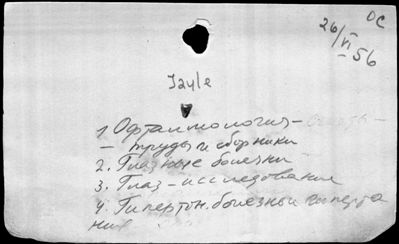 ОС
26/VI 56
Jayle
1. Офталмология –
– труды и сборники
2. Глазные болезни
3. Глаз – исследования
4. Гипертон. болезнь и гиперто
ния